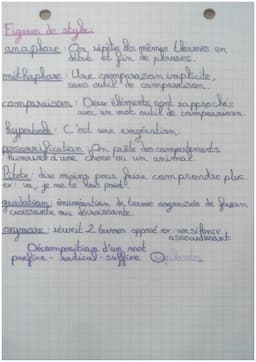 Figures de style:
anaphore: On répète les mêmes thermes en
début et fin de phrases.
méthaphore: Une comparaison implicite,
sans outil de comparaison.
comparaison: Deux éléments sont rapprochés
avec un mot outil de comparaison.
hyperbole: C'est une exagération.
personnification: On prête des comportements
humains à une chose ou un animal.
Litote: dire moins pour faire comprendre plus
ex: va, je ne te hais point.
gradation: énumération de terme organisés de façon
croissante ou décroissante.
oxymore: réunit 2 termes opposé ex: un silence
assourdissant
Décomposition d'un mot
préfixe - radical - suffixe